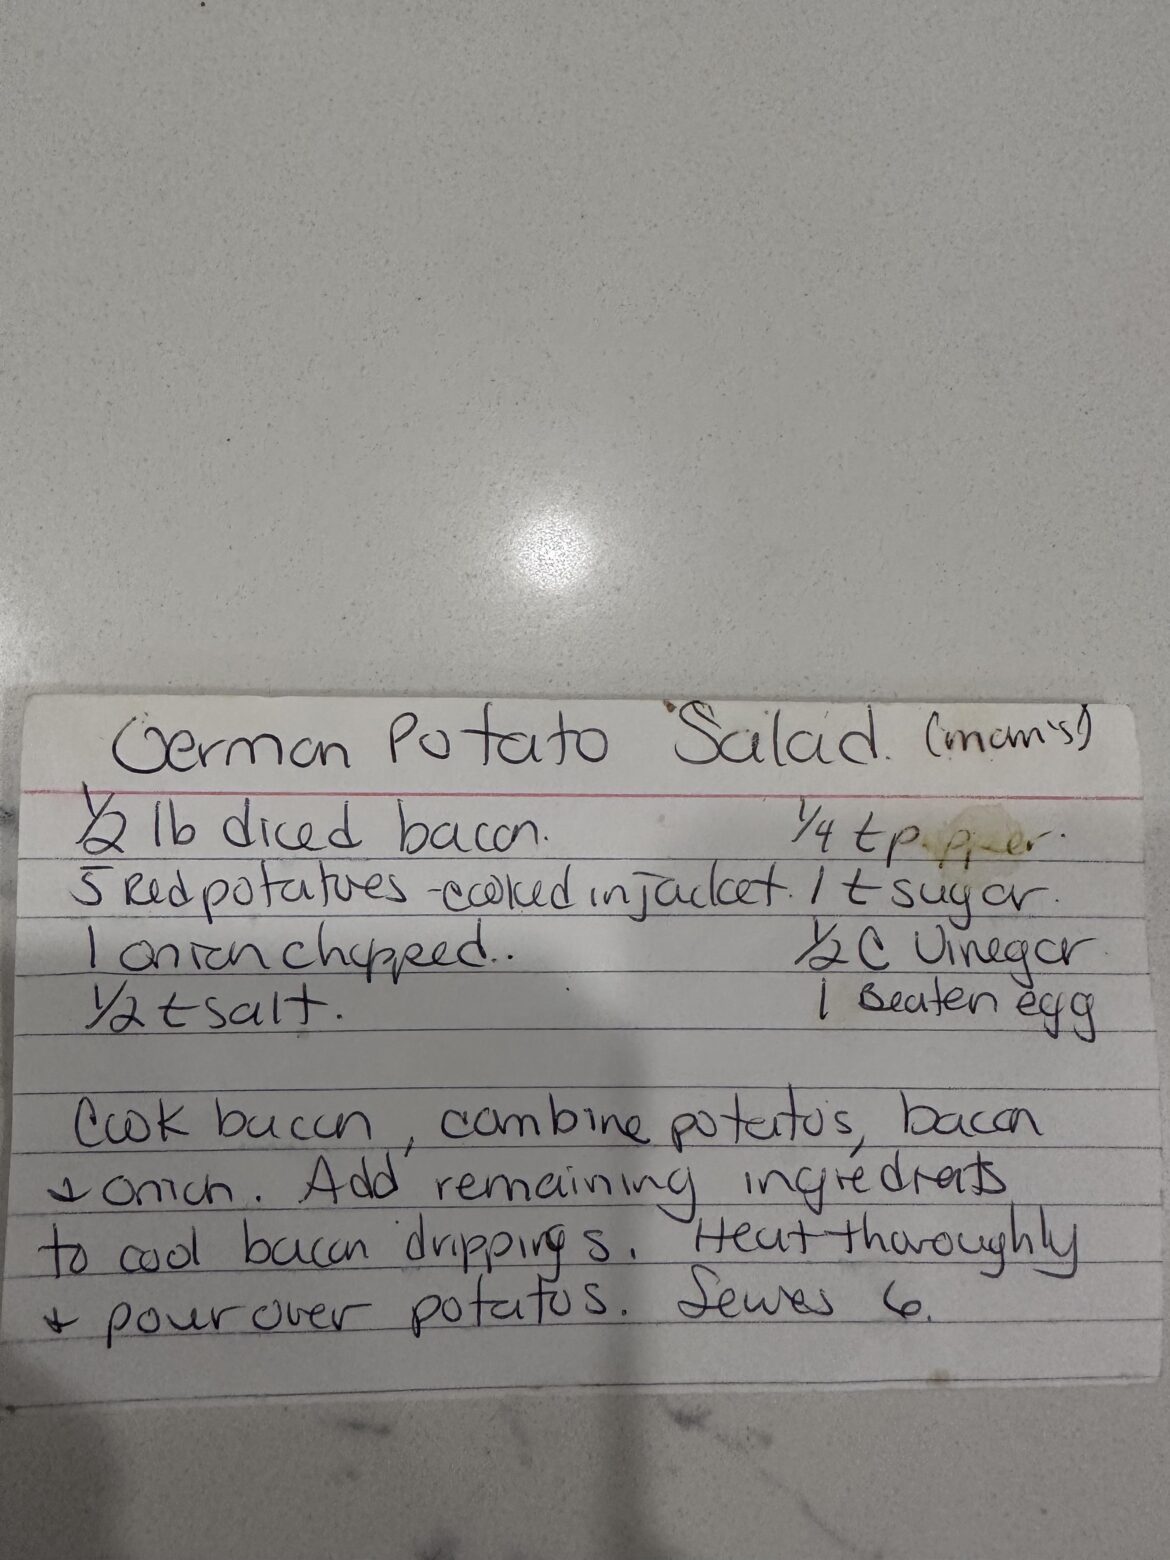 German Potato Salad. (mom's)
1/2 lb diced bacon. 1/4 t pepper.
5 Red potatoes - cooked in jacket. 1 t sugar.
1 onion chopped.. 1/2 C Vinegar
1/2 t salt. 1 Beaten egg
Cook bacon, combine potatos, bacon
+ onion. Add remaining ingredients
to cool bacon drippings. Heat thoroughly
+ pour over potatos. Serves 6.